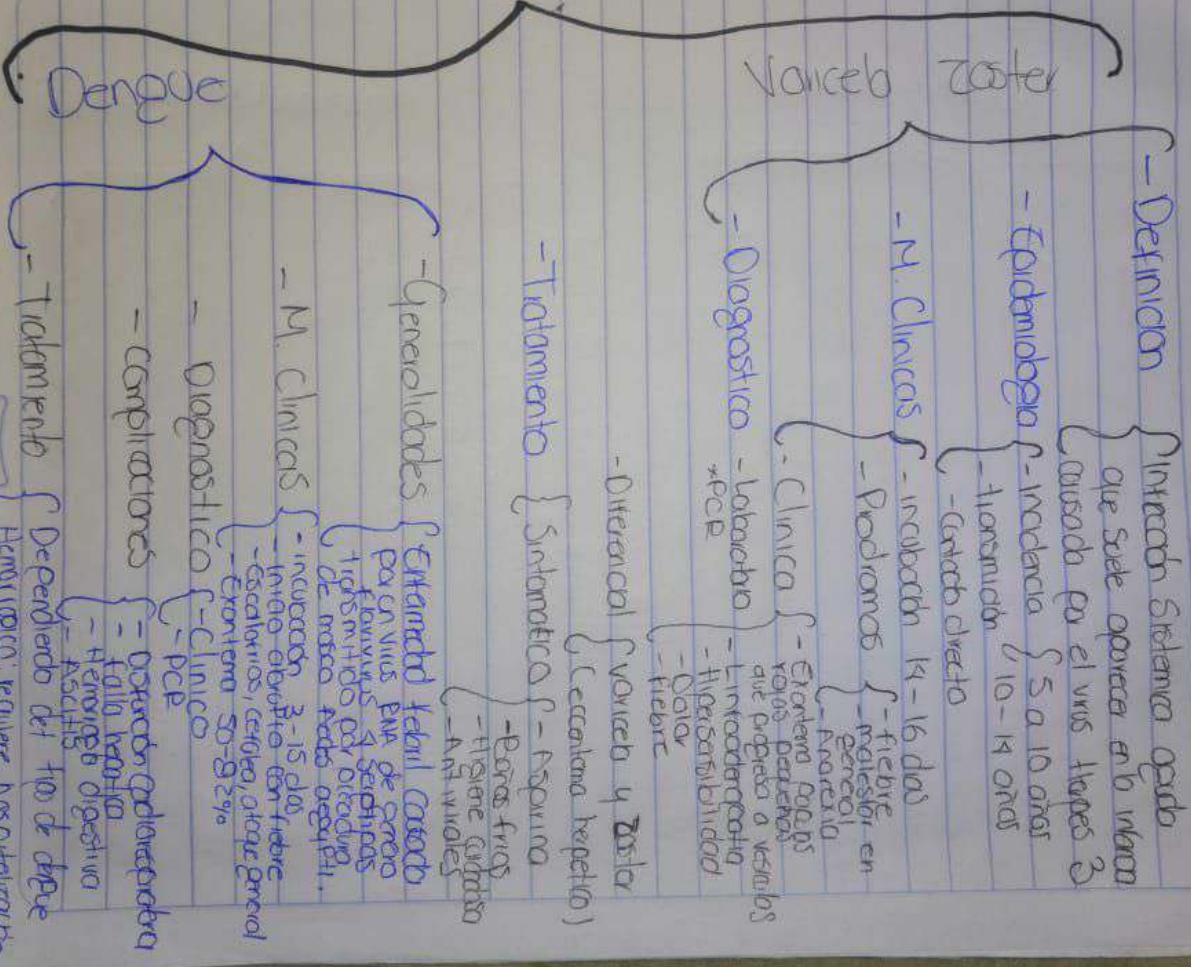 Varicela Zoster
- Definicion
Infección Sistemica aguda
que suele aparecer en la infancia
causada por el virus herpes 3
- Epidemiologia
- Incidencia
5 a 10 años
10 - 14 años
- transmisión
- Contacto directo
- M. Clinicas
- incubación 14 - 16 dias
- Prodromos
- fiebre
- malestar en
general
- Anorexia
- Clinica
- Exantema papas
rojas pequeñas
que progresa a vesiculas
- Linfoadenopatia
- Hipersensibilidad
- Dolor
- fiebre
- Diagnostico
- Laboratorio
*PCR
- Diferencial
varicela y zoster
(eccantema herpetico)
- Tratamiento
Sintomatico
- Aspirina
- Baños frios
- Higiene cuidadosa
- Antivirales
Dengue
- Generalidades
Enfermedad febril causada
por un virus RNA de genero
flavivirus 4 serotipos
transmitido por picadura
de mosco Aedes aegypti.
- M. Clinicas
- incuvacción 3-15 dias
- Inicio abrupto con fiebre
- escalofrios, cefalea, ataque general
- Exantema 50-82%
- Diagnostico
- Clinico
- PCR
- Complicaciones
- Disfunción cardiorespiratoria
- falla hepatica
- Hemorragia digestiva
- Ascitis
- Tratamiento
Dependiendo del tipo de dengue
Hemorragico: requiere hospitalización